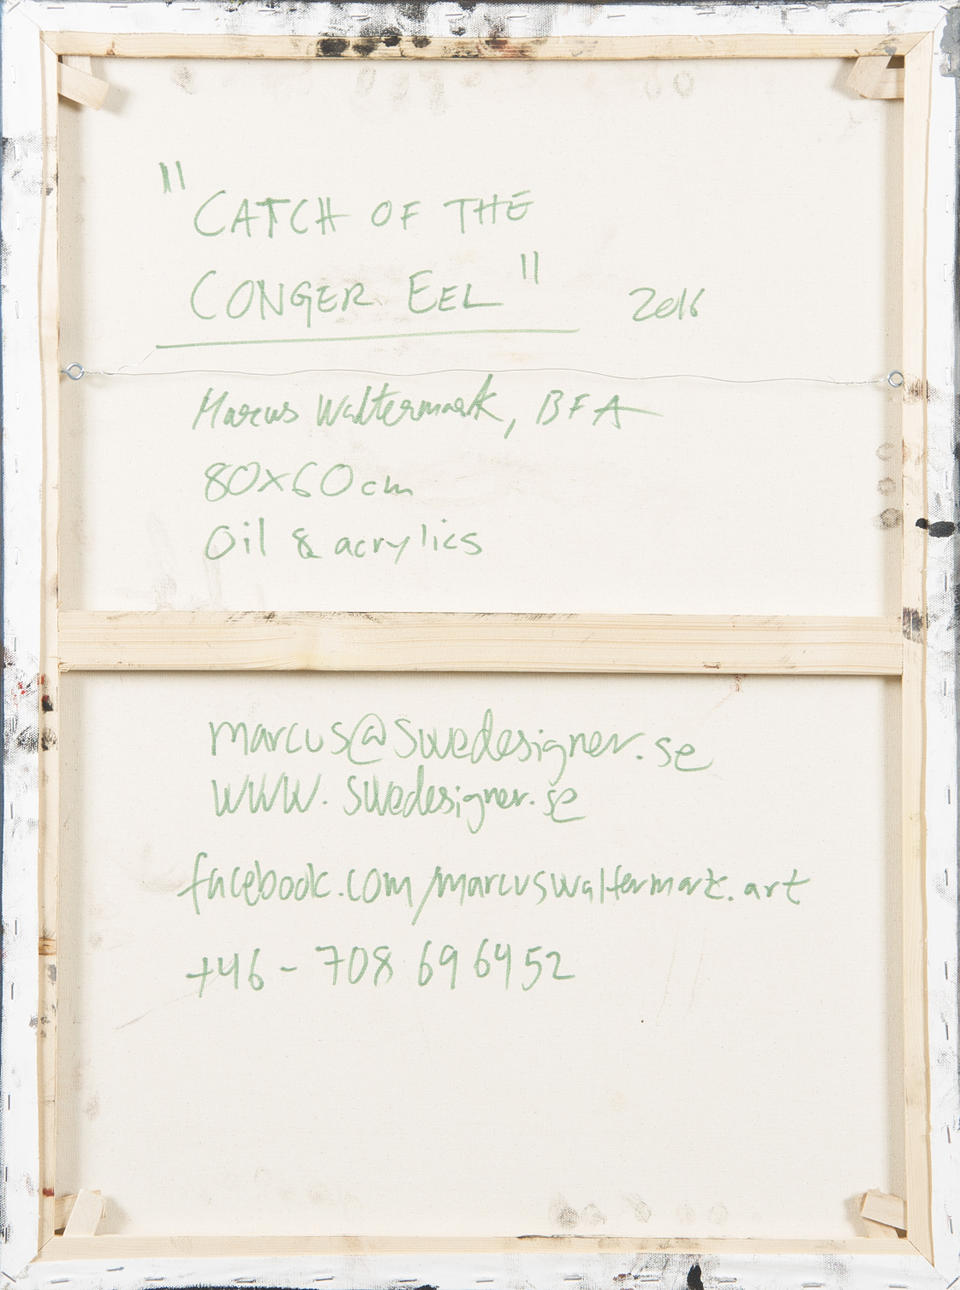 "CATCH OF THE
CONGER EEL" 2016
Marcus Waltermark, BFA
80x60cm
Oil & acrylics
marcus@swedesigner.se
www.swedesigner.se
facebook.com/marcuswaltermark.art
+46-708 69 64 52